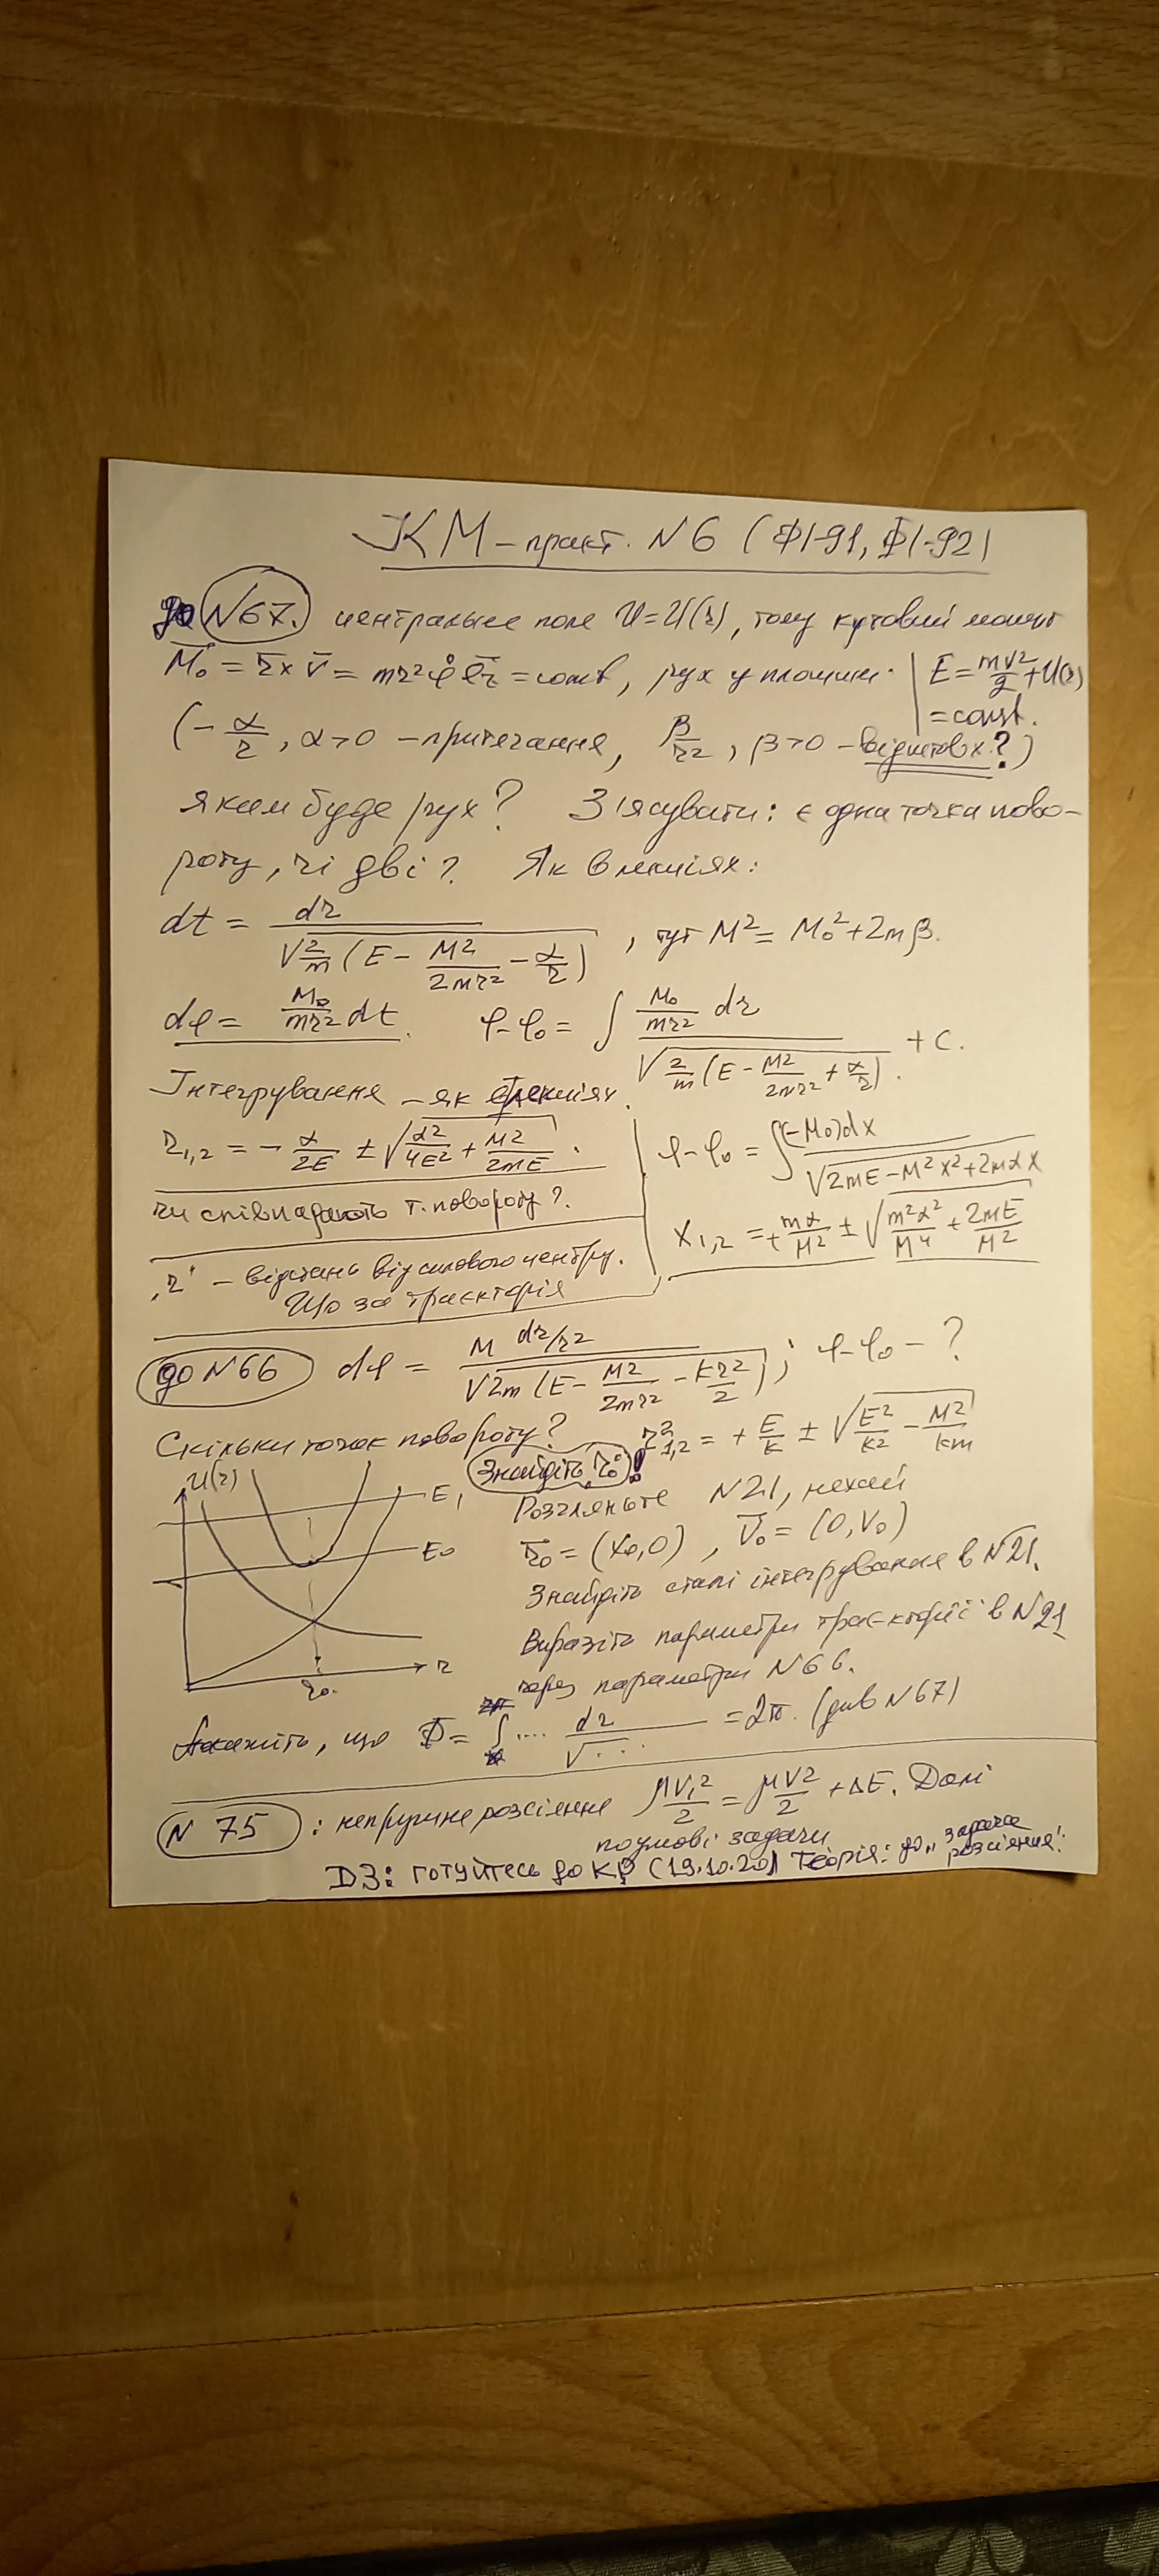 КМ – практ. N6 (ФІ-91, ФІ-92)
до N67. центральне поле U=U(r), тому кутовий момент
M̄₀ = r̄ × v̄ = mr²φ̇ ē_z = const, рух у площині. | E = mv²/2 + U(r) = const.
(-α/r, α>0 – притягання, β/r², β>0 – відштовх?)
яким буде рух? З'ясувати: є одна точка пово-
роту, чі дві? Як в лекціях:
dt = dr / √(2/m (E - M²/2mr² - α/r)), тут M² = M₀² + 2mβ.
dφ = M₀/mr² dt. φ-φ₀ = ∫ (M₀/mr² dr) / √(2/m (E - M²/2mr² + α/r)) + C.
Інтегрування – як в лекціях.
r₁,₂ = - α/2E ± √(α²/4E² + M²/2mE).
чи співпадають т. повороту?
„r" – відстань від силового центру.
Що за траєкторія
φ-φ₀ = ∫ (-M₀)dx / √(2mE - M²x² + 2mαx)
x₁,₂ = + mα/M² ± √(m²α²/M⁴ + 2mE/M²)
до N66 dφ = M dr/r² / √(2m (E - M²/2mr² - kr²/2)) ; φ-φ₀ – ?
Скільки точок повороту? r²₁,₂ = + E/k ± √(E²/k² - M²/km)
Знайдіть r₀!
U(r)
E₁
E₀
r
r₀.
Розгляньте N21, нехай
r̄₀ = (x₀,0), v̄₀ = (0,v₀)
Знайдіть сталі інтегрування в N21.
Виразіть параметри траєкторії в N21
через параметри N66.
що Φ = ∫ .... dr / √... = 2π. (див N67)
N 75 : непружне розсіяння μv₁²/2 = μv²/2 + ΔE. Далі
по умові задачи
ДЗ: готуйтесь до КР (19.10.20) Теорія: до „задача
розсіяння!